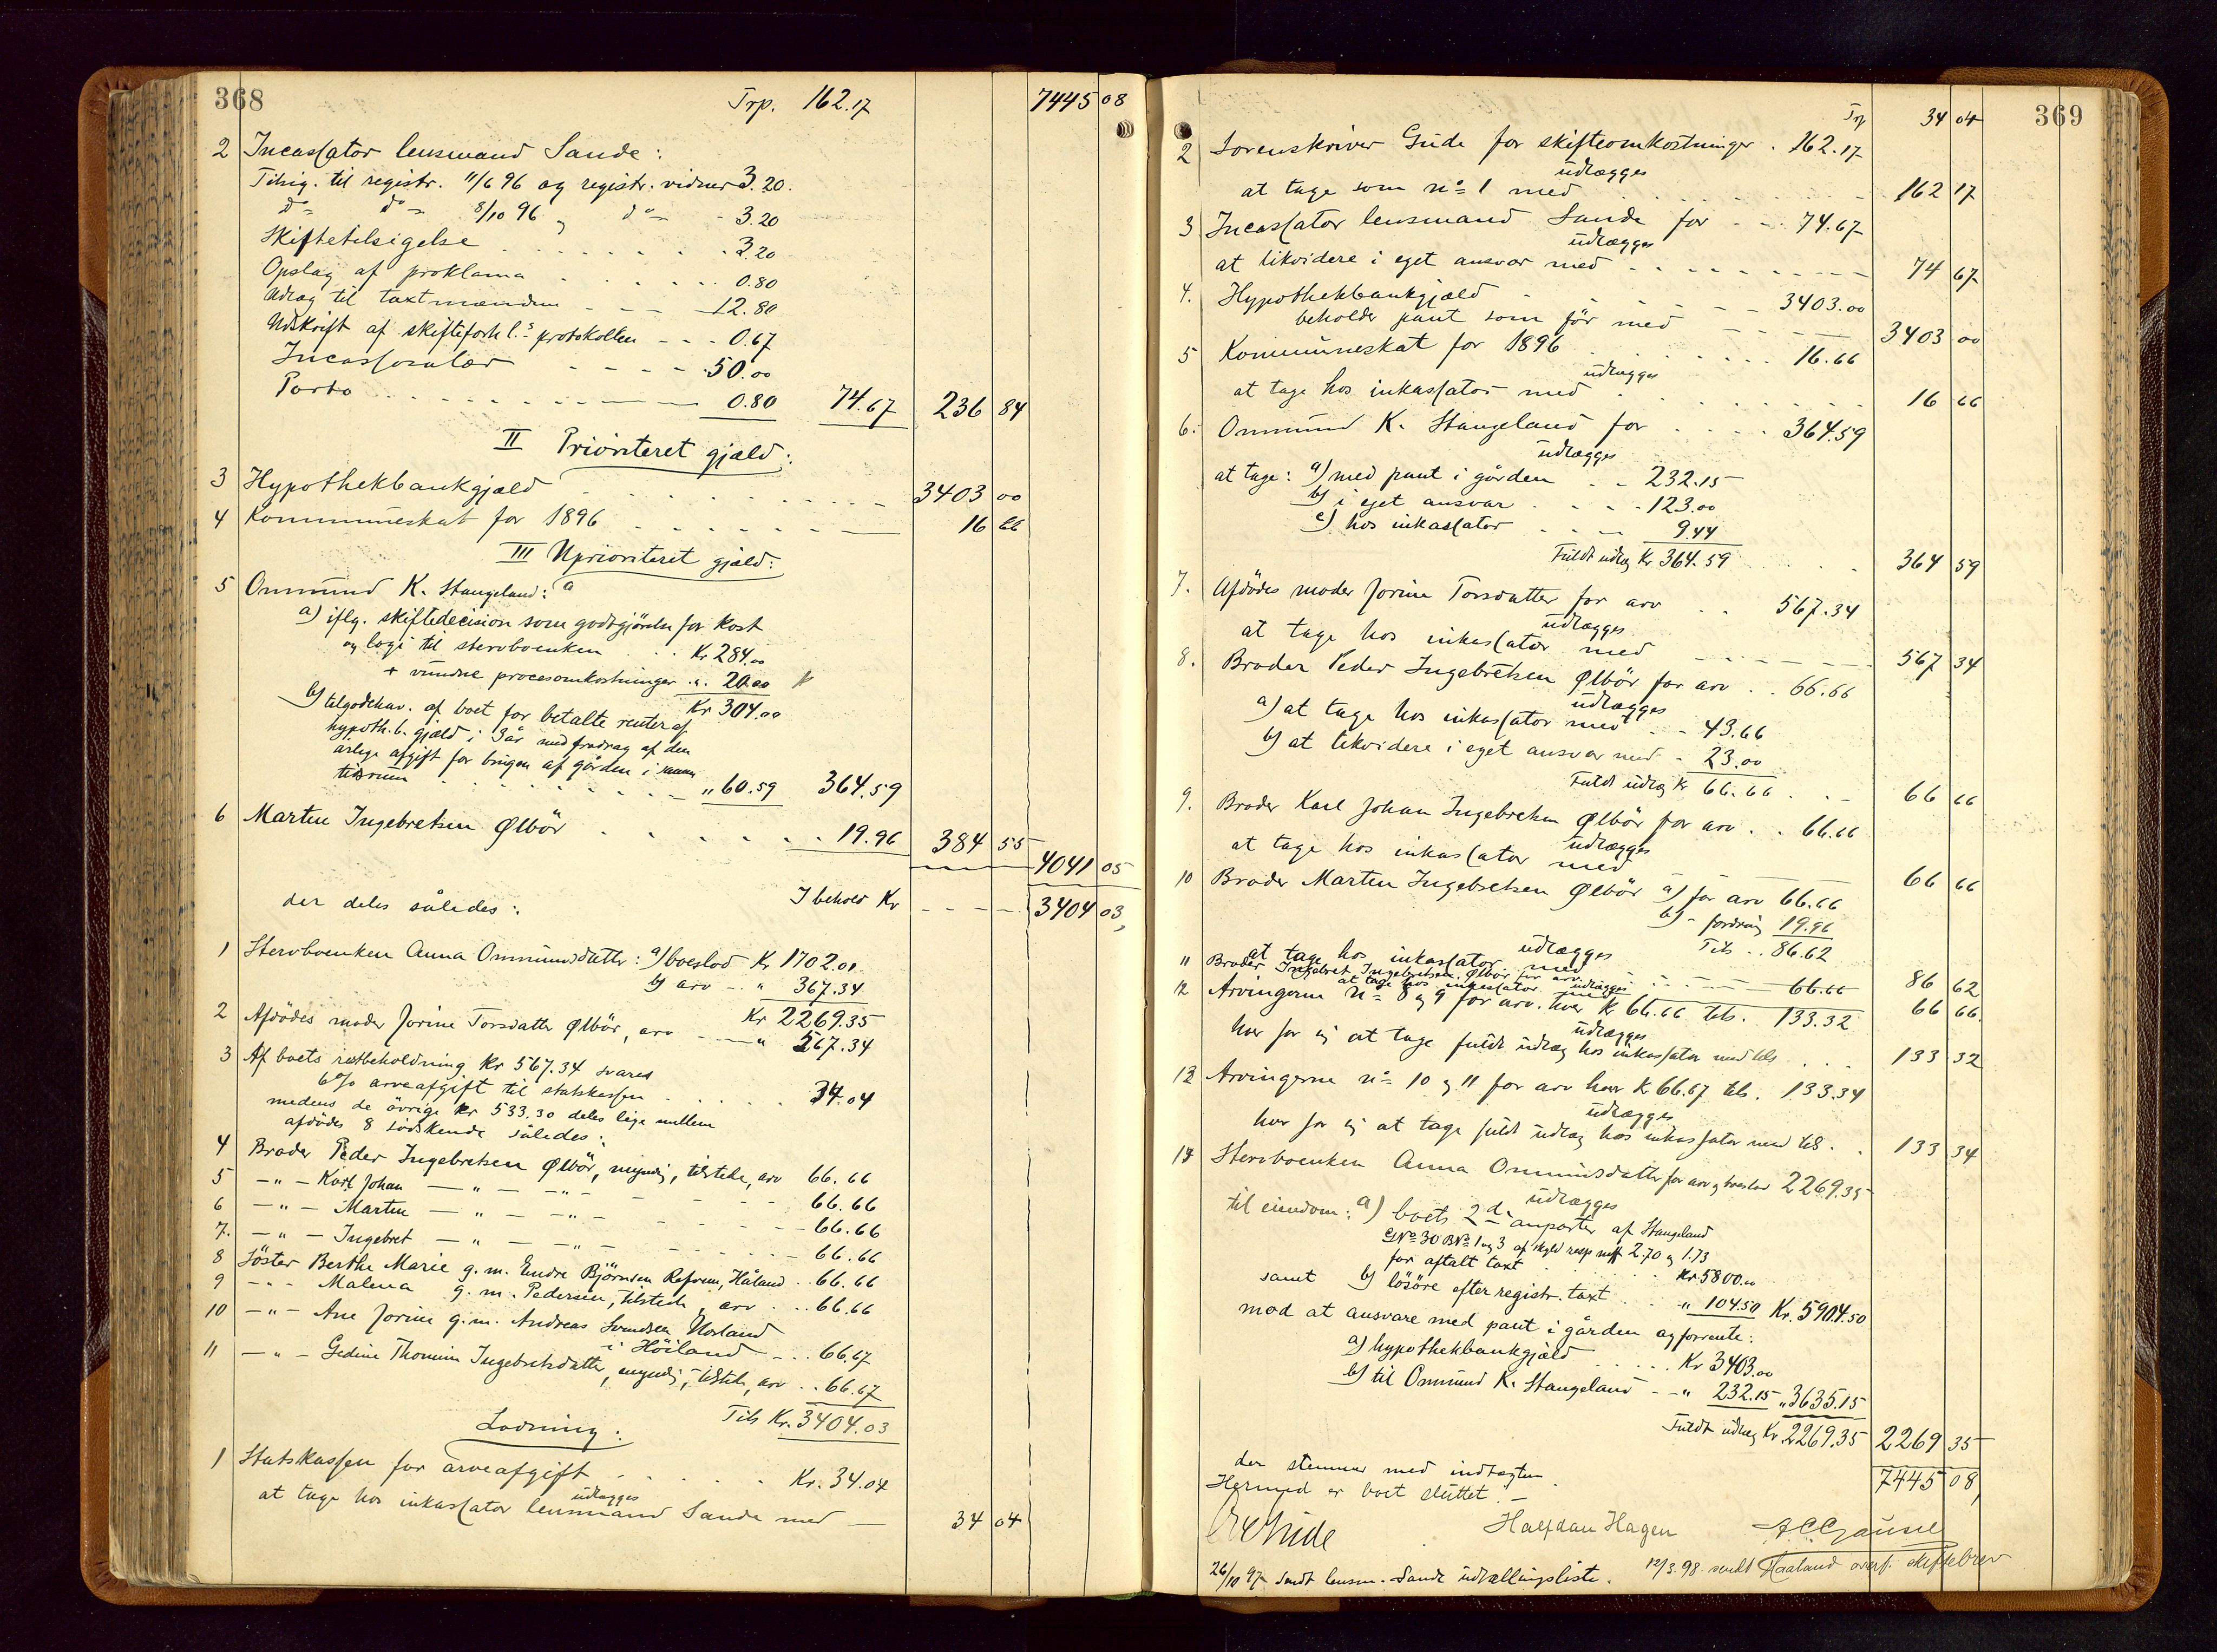 368
Trp. 162.17 7445 08
2 Incassator lensmand Sande:
Tilsig. til registr. 11/6 96 og registr. vidner 3.20.
do do 8/10 96 " do - 3.20
Skiftetilsigelse . . . . . 3.20
Opslag af proklama . . . . 0.80
Udlæg til taxtmændene - - - 12.80
Udskrift af skifteforh.l.s protokollen - - - 0.67
Incassosalær - - - - 50.00
Porto . . . . . . 0.80 74.67 236 84
II Prioriteret gjæld:
3 Hypothekbankgjæld . . . . . 3403 00
4 Kommuneskat for 1896 . . . . . 16 66
III Uprioriteret gjæld:
5 Ommund K. Stangeland:
a) iflg. skiftedecision som godtgjörelse for Kost
og logi til stervboenken . . Kr 284.00
+ vundne procesomkostninger . " . 20.00
Kr 304.00
b) tilgodehav. af boet for betalte renter af
hypoth. b. gjæld i 3 år med fradrag af den
årlige afgift for brugen af gården i samme
tidsrum . . . . . . " 60.59 364.59
6 Martin Ingebretsen Ølbör . . . . . 19.96 384 55
4041 05
I behold Kr - - - 3404 03,
der deles således:
1 Stervboenken Anna Ommundsdatter: a) boeslod Kr 1702.01
b) arv - " 567.34
Kr 2269.35
2 Afdödes moder Jorine Torsdatter Ølbör, arv - - - " 567.34
3 Af boets restbeholdning Kr 567.34 svares
6% arveafgift til statskassen . . . . . 34.04
medens de övrige Kr 533.30 deles lige mellem
afdödes 8 södskende således:
4 Broder Peder Ingebretsen Ølbör, myndig, tilstede, arv 66.66
5 - " - Karl Johan - " - - " - - - - 66.66
6 - " - Martin - " - - " - - - - 66.66
7. - " - Ingebret - " - - " - - - - 66.66
8 Söster Berthe Marie g. m. Endre Björnsen Refvem, Håland . . 66.66
9 - " - Malena g. m. Pedersen, tilstede, arv . . . 66.66
10 - " - Ane Jorine g. m. Andreas Svendsen Norland
i Höiland - . . 66.67
11 - " - Gedine Thomine Ingebretsdatter, myndig, tilstede, arv . . 66.67
Tils Kr. 3404.03
Lodning:
1 Statskassen for arveafgift . . . . . Kr. 34.04
udlægges
at tage hos inkassator lensmand Sande med - 34 04
369
Trp 34 04
2 Sorenskriver Gude for skifteomkostninger . 162.17
udlægges
at tage som no 1 med . . . . . . 162 17
3 Incassator lensmand Sande for - - - 74.67
udlægges
at likvidere i eget ansvar med - - - - - - - 74 67
4. Hypothekbankgjæld . . . 3403.00
beholder pant som för med - - - - - 3403 00
5 Kommuneskat for 1896 . . . . . . 16.66
udlægges
at tage hos inkassator med . . . . . . 16 66
6. Ommund K. Stangeland for . . . . 364.59
udlægges
at tage: a) med pant i gården . . - 232.15
b) i eget ansvar . . . . 123.00
c) hos inkassator - - - 9.44
Fuldt udlæg Kr 364.59 . . . 364 59
7. Afdödes moder Jorine Torsdatter for arv . . 567.34
udlægges
at tage hos inkassator med - - - - - 567 34
8. Broder Peder Ingebretsen Ølbör for arv . . 66.66
udlægges
a) at tage hos inkassator med - - 43.66
b) at likvidere i eget ansvar med - 23.00
Fuldt udlæg Kr 66.66 . . - 66 66
9. Broder Karl Johan Ingebretsen Ølbör for arv . . 66.66
udlægges
at tage hos inkassator med 66 66
10 Broder Martin Ingebretsen Ølbör a) for arv 66.66
b) - fordring 19.96
Tils . . 86.62
udlægges
at tage hos inkassator med 86 62
11 Broder Ingebret Ingebretsen Ølbör for arv . . - - 66.66
udlægges
at tage hos inkassator med 66 66.
12 Arvingerne no 8 og 9 for arv. hver Kr 66.66 tils. 133.32
udlægges
hver for sig at tage fuldt udlæg hos inkassator med tils . . . 133 32
13 Arvingerne no 10 og 11 for arv hver Kr 66.67 tils. 133.34
udlægges
hver for sig at tage fuldt udlæg hos inkassator med tils. . 133 34
14 Stervboenken Anna Ommundsdatter for arv og boeslod 2269.35
udlægges
til eiendom: a) boets 2de anparter af Stangeland
GNo 30 BNo 1 og 3 af skyld resp mk 2.70 og 1.73
for aftalt taxt . . . . . Kr 5800.00
samt b) lösöre efter registr. taxt . . " 104.50 Kr. 5904.50
mod at ansvare med pant i gården og forrente:
a) hypothekbankgjæld . . . . Kr 3403.00
b) til Ommund K. Stangeland - - " 232.15 " 3635.15
Fuldt udlæg Kr. 2269.35 2269 35
der stemmer med indtægten . 7445 08,
Hermed er boet sluttet. -
Gude Halfdan Hagen
26/10 97 Sendt lensm. Sande udlodningsliste. 12/3. 98. sendt Haaland overf. skiftebrev